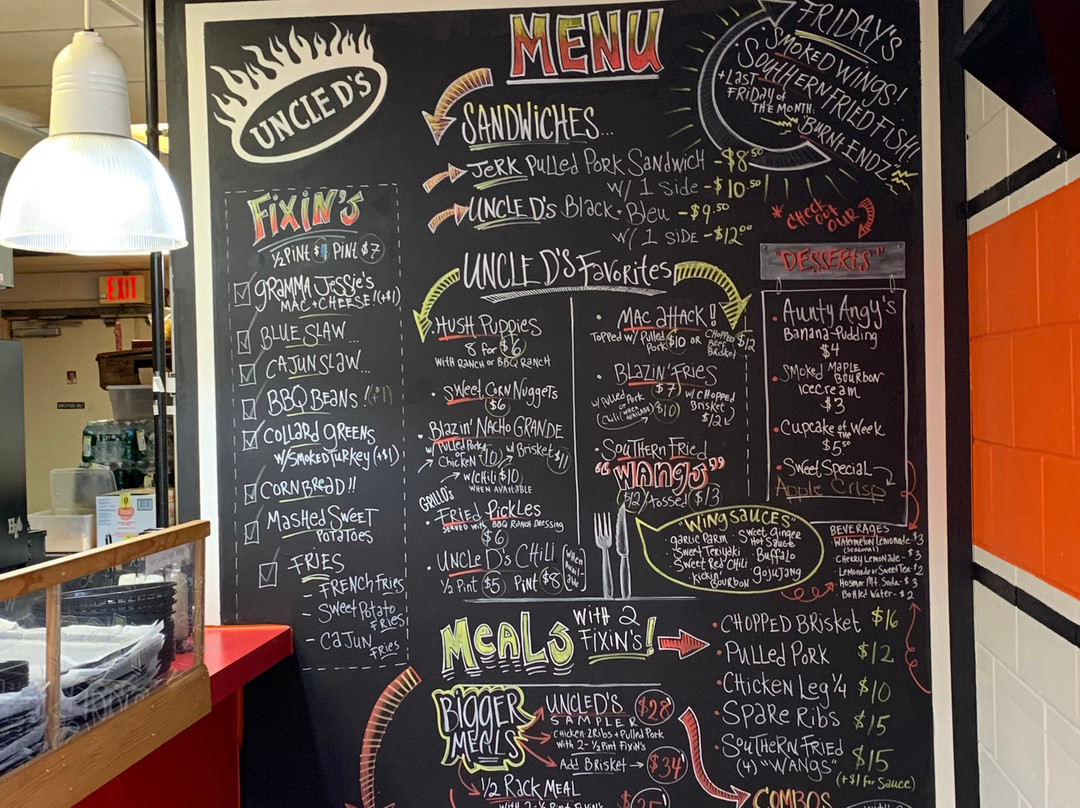 UNCLE D'S
MENU
FRIDAY'S
• SMOKED WINGS!
• SOUTHERN FRIED FISH!!
+ LAST
FRIDAY OF
THE MONTH.
"BURNT ENDZ"
SANDWICHES...
JERK PULLED PORK SANDWICH - $8.50
W/ 1 SIDE - $10.50
UNCLE D'S BLACK • BLEU - $9.50
W/ 1 SIDE - $12.00
EXIT
FIXIN'S
½ PINT $ PINT $7
GRAMMA JESSIE'S
MAC + CHEESE! (+$1)
BLUE SLAW...
CAJUN SLAW...
BBQ BEANS!
COLLARD GREENS
W/ SMOKED TURKEY (+$1)
CORNBREAD!!
MASHED SWEET
POTATOES
FRIES
- FRENCH FRIES
- SWEET POTATO
FRIES
- CAJUN
FRIES
UNCLE D'S FAVORITES
• HUSH PUPPIES
8 FOR $6
WITH RANCH OR BBQ RANCH
• SWEET CORN NUGGETS
$6
• BLAZIN' NACHO GRANDE
W/ PULLED PORK
OR
CHICKEN $10 W/ BRISKET $11
W/ CHILI $10
WHEN AVAILABLE
GRILLO'S
• FRIED PICKLES
SERVED WITH BBQ RANCH DRESSING
$6
• UNCLE D'S CHILI
½ PINT $5 PINT $8
• MAC ATTACK!
TOPPED W/ PULLED
PORK $10 OR CHOPPED
BEEF
BRISKET
$12
• BLAZIN' FRIES
$7
W/ PULLED
PORK
OR
CHILI (WHEN
AVAILABLE) $10
W/ CHOPPED
BRISKET
$12
SOUTHERN FRIED
"WANGS"
$12 / TOSSED $13
"WING SAUCES"
• GARLIC PARM
• SWEET TERIYAKI
• SWEET RED CHILI
• KICKIN'
BOURBON
• SWEET GINGER
HOT SAUCE
• BUFFALO
• GOJUJANG
* CHECK
OUT
OUR
"DESSERTS"
• AUNTY ANGY'S
BANANA PUDDING
$4
• SMOKED MAPLE
BOURBON
ICECREAM
$3
• CUPCAKE OF THE WEEK
$5.50
• SWEET SPECIAL
Apple Crisp
BEVERAGES
• WATERMELON LEMONADE - $3
(SEASONAL)
• CHERRY LEMONADE - $3
• LEMONADE OR SWEET TEA - $2
• HOSMER MT. SODA - $3
• BOTTLED WATER - $2
MEALS WITH 2
FIXIN'S!
• CHOPPED BRISKET $16
• PULLED PORK $12
• CHICKEN LEG ¼ $10
• SPARE RIBS $15
• SOUTHERN FRIED
(4) "WANGS" $15
(+$1 FOR SAUCE)
BIGGER
MEALS
UNCLE D'S $28
SAMPLER
CHICKEN • 2 RIBS + PULLED PORK
WITH 2 - ½ PINT FIXIN'S
ADD BRISKET → $34
½ RACK MEAL
COMBOS